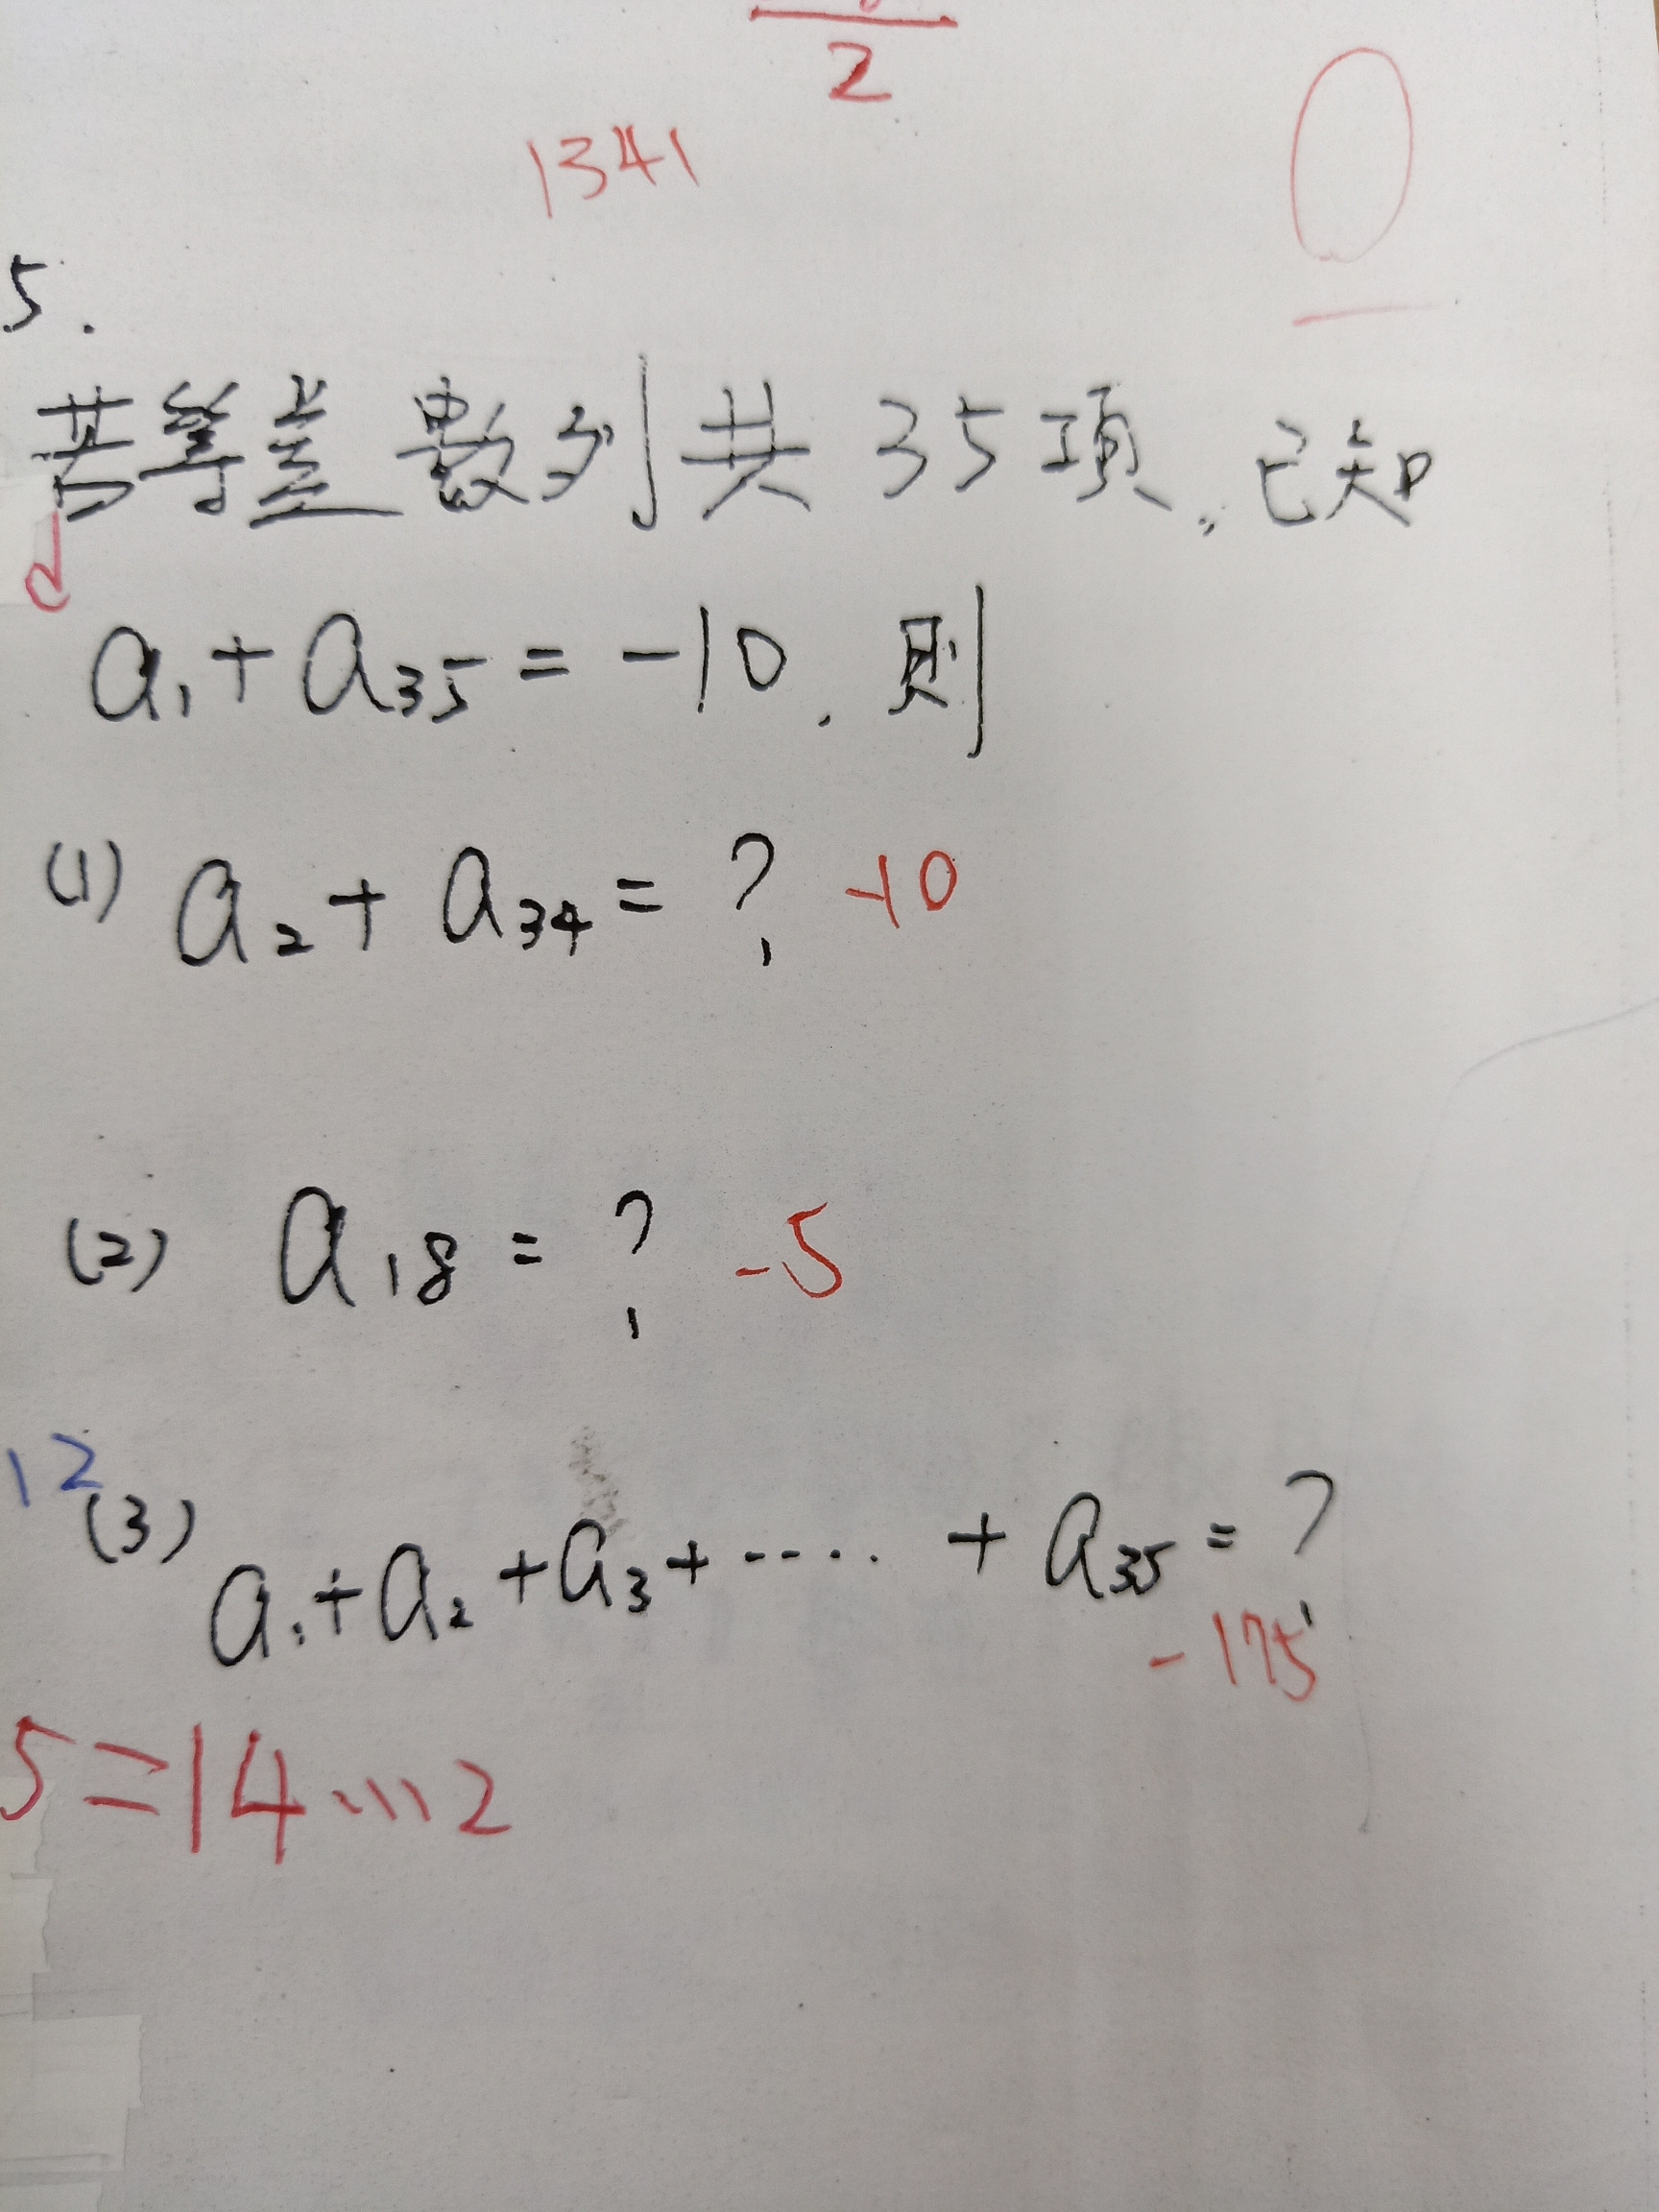 2
1341
0
5.
若等差數列共35項,已知
d
a₁+a₃₅=-10,則
(1) a₂+a₃₄=? -10
(2) a₁₈=? -5
12
(3) a₁+a₂+a₃+.....+a₃₅=?
-175
5=14...2